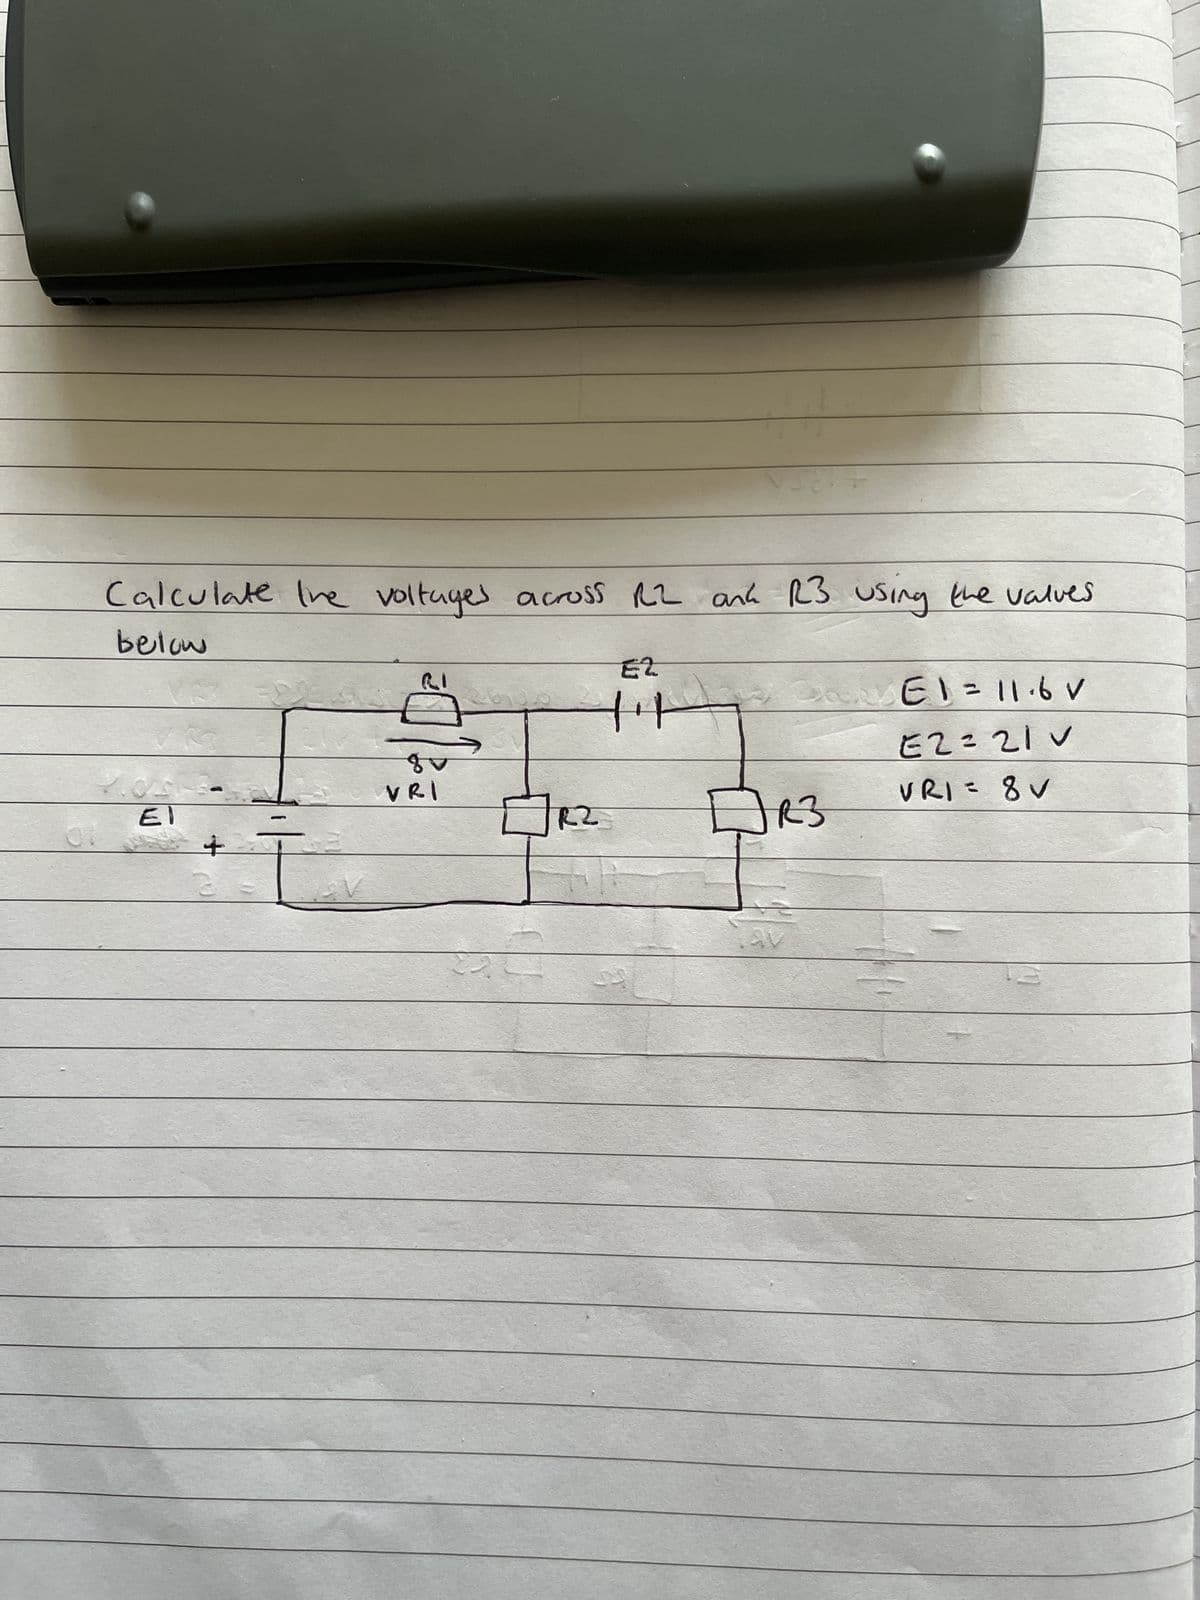 Calculate the voltages across R2 and R3 using the values
below
R1
E2
E1 = 11.6 V
E2 = 21 V
VR1 = 8 V
8V
VR1
-
E1
+
R2
R3